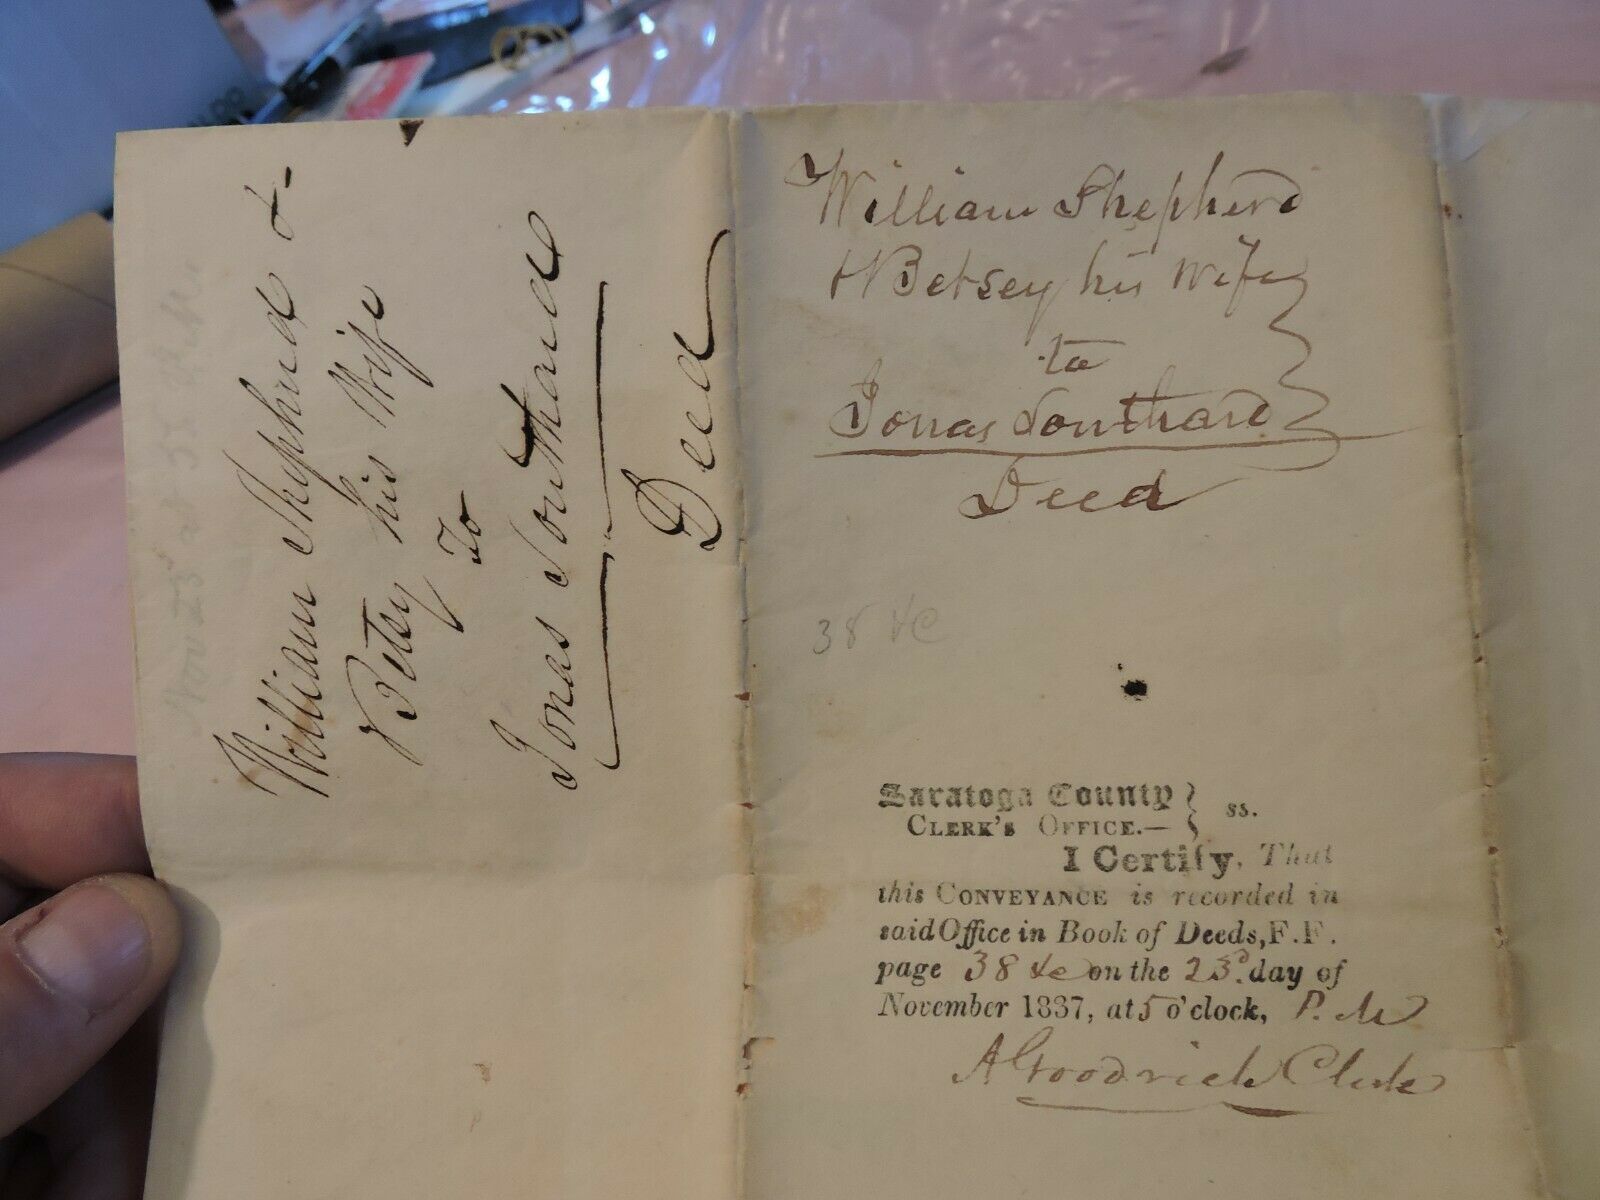 William Shepherd &
& Betsey his Wife
To
Jonas Southard
Deed
William Shepherd
& Betsey his wife
to
Jonas Southard
Deed
38 &c
Saratoga County } ss.
CLERK'S OFFICE.—
I Certify, That
this CONVEYANCE is recorded in
said Office in Book of Deeds, F.F.
page 38 &c on the 23d. day of
November 1837, at 5 o'clock, P. M
A Goodrich Clerk